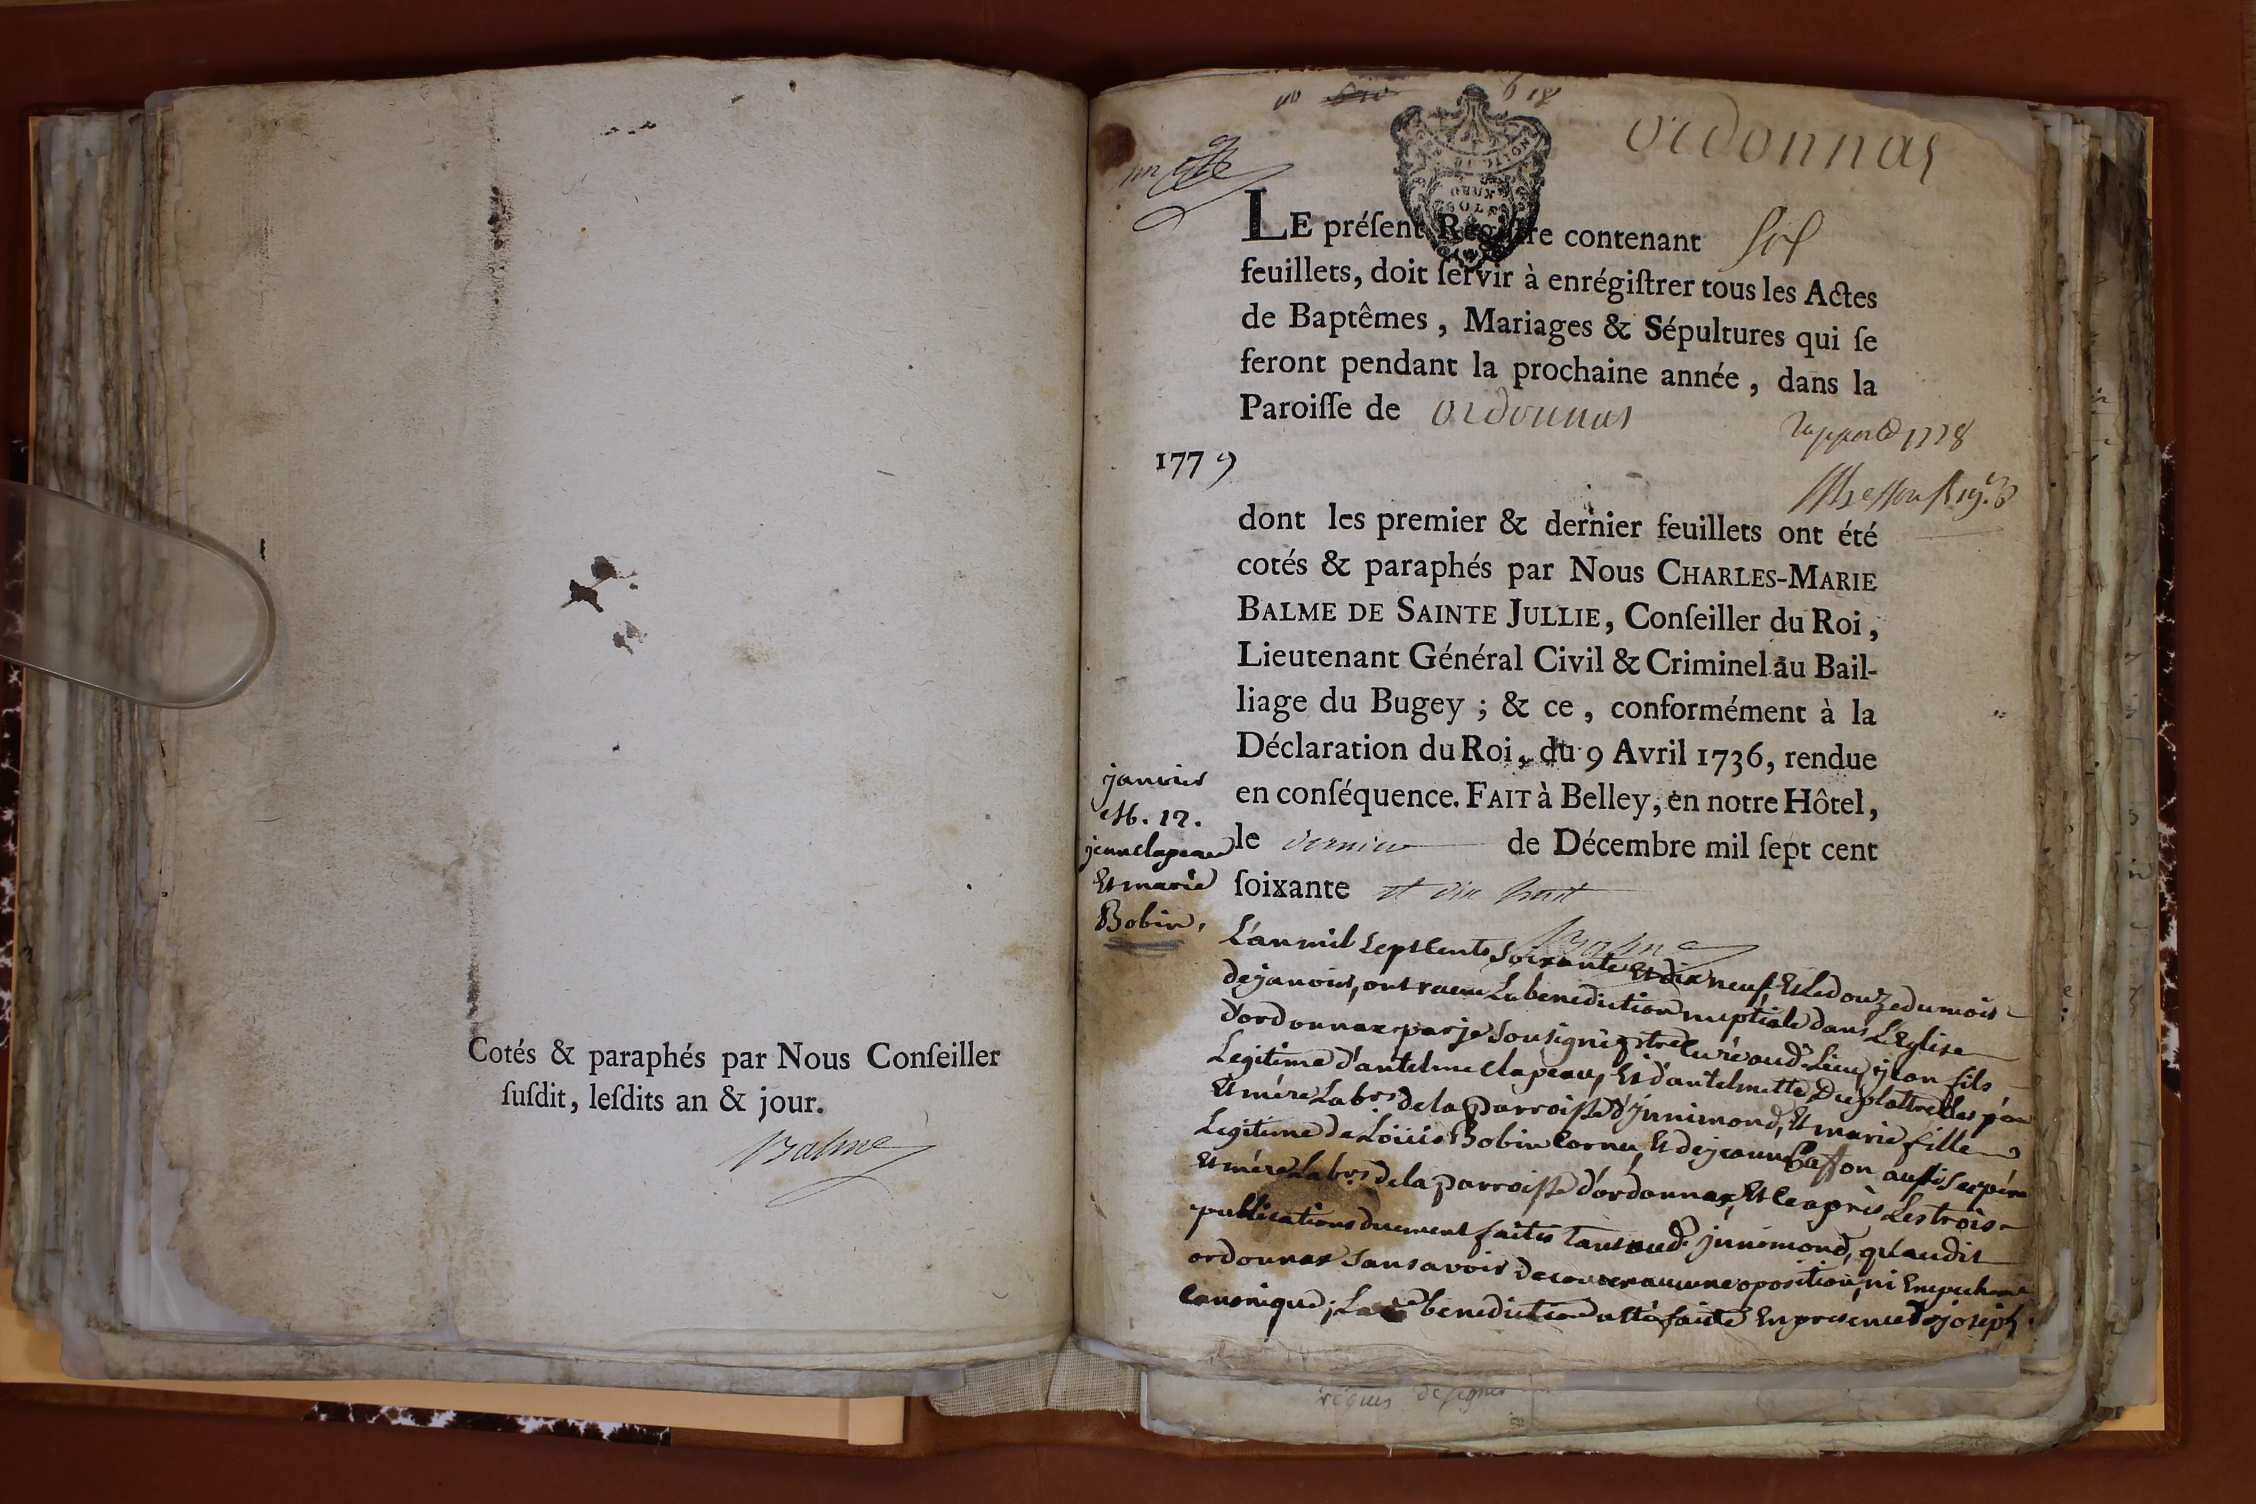 Cotés & paraphés par Nous Conſeiller
ſuſdit, leſdits an & jour.
Balme
618
ordonnas
LE préſent Regiſtre contenant six
feuillets, doit ſervir à enrégiſtrer tous les Actes
de Baptêmes, Mariages & Sépultures qui ſe
feront pendant la prochaine année, dans la
Paroiſſe de ordonnas
rapporté 1778
1779
dont les premier & dernier feuillets ont été
cotés & paraphés par Nous CHARLES-MARIE
BALME DE SAINTE JULLIE, Conſeiller du Roi,
Lieutenant Général Civil & Criminel au Bail-
liage du Bugey; & ce, conformément à la
Déclaration du Roi, du 9 Avril 1736, rendue
en conſéquence. FAIT à Belley, en notre Hôtel,
le dernier de Décembre mil ſept cent
ſoixante et dix huit
Balme
janvier
M. 12.
jean clapeau
Et marie
Bobin,
L'an mil sept cents soixante et dix neuf, Et le douze du mois
de janvier, ont recu La benediction nuptiale dans L'Eglise
d'ordonnax par je sousigné ptre curé aud. Lieu, jean fils
Legitime d'antelme clapeau, Et d'antelmette Duplattre ses père
Et mére Labrs de la parroisse d'jnnimond, Et marie fille
Legitime de Loüis Bobin cornu, Et de jeanne Casson aussi ses père
Et mére Labrs de la parroisse d'ordonnax, Et ce après Les trois
publications duement faites tant aud. jnnimond, qu'audit
ordonnax sans avoir decouver aucune oposition, ni Empechement
canonique; La de benediction a été faite En presence de joseph
requis de signer